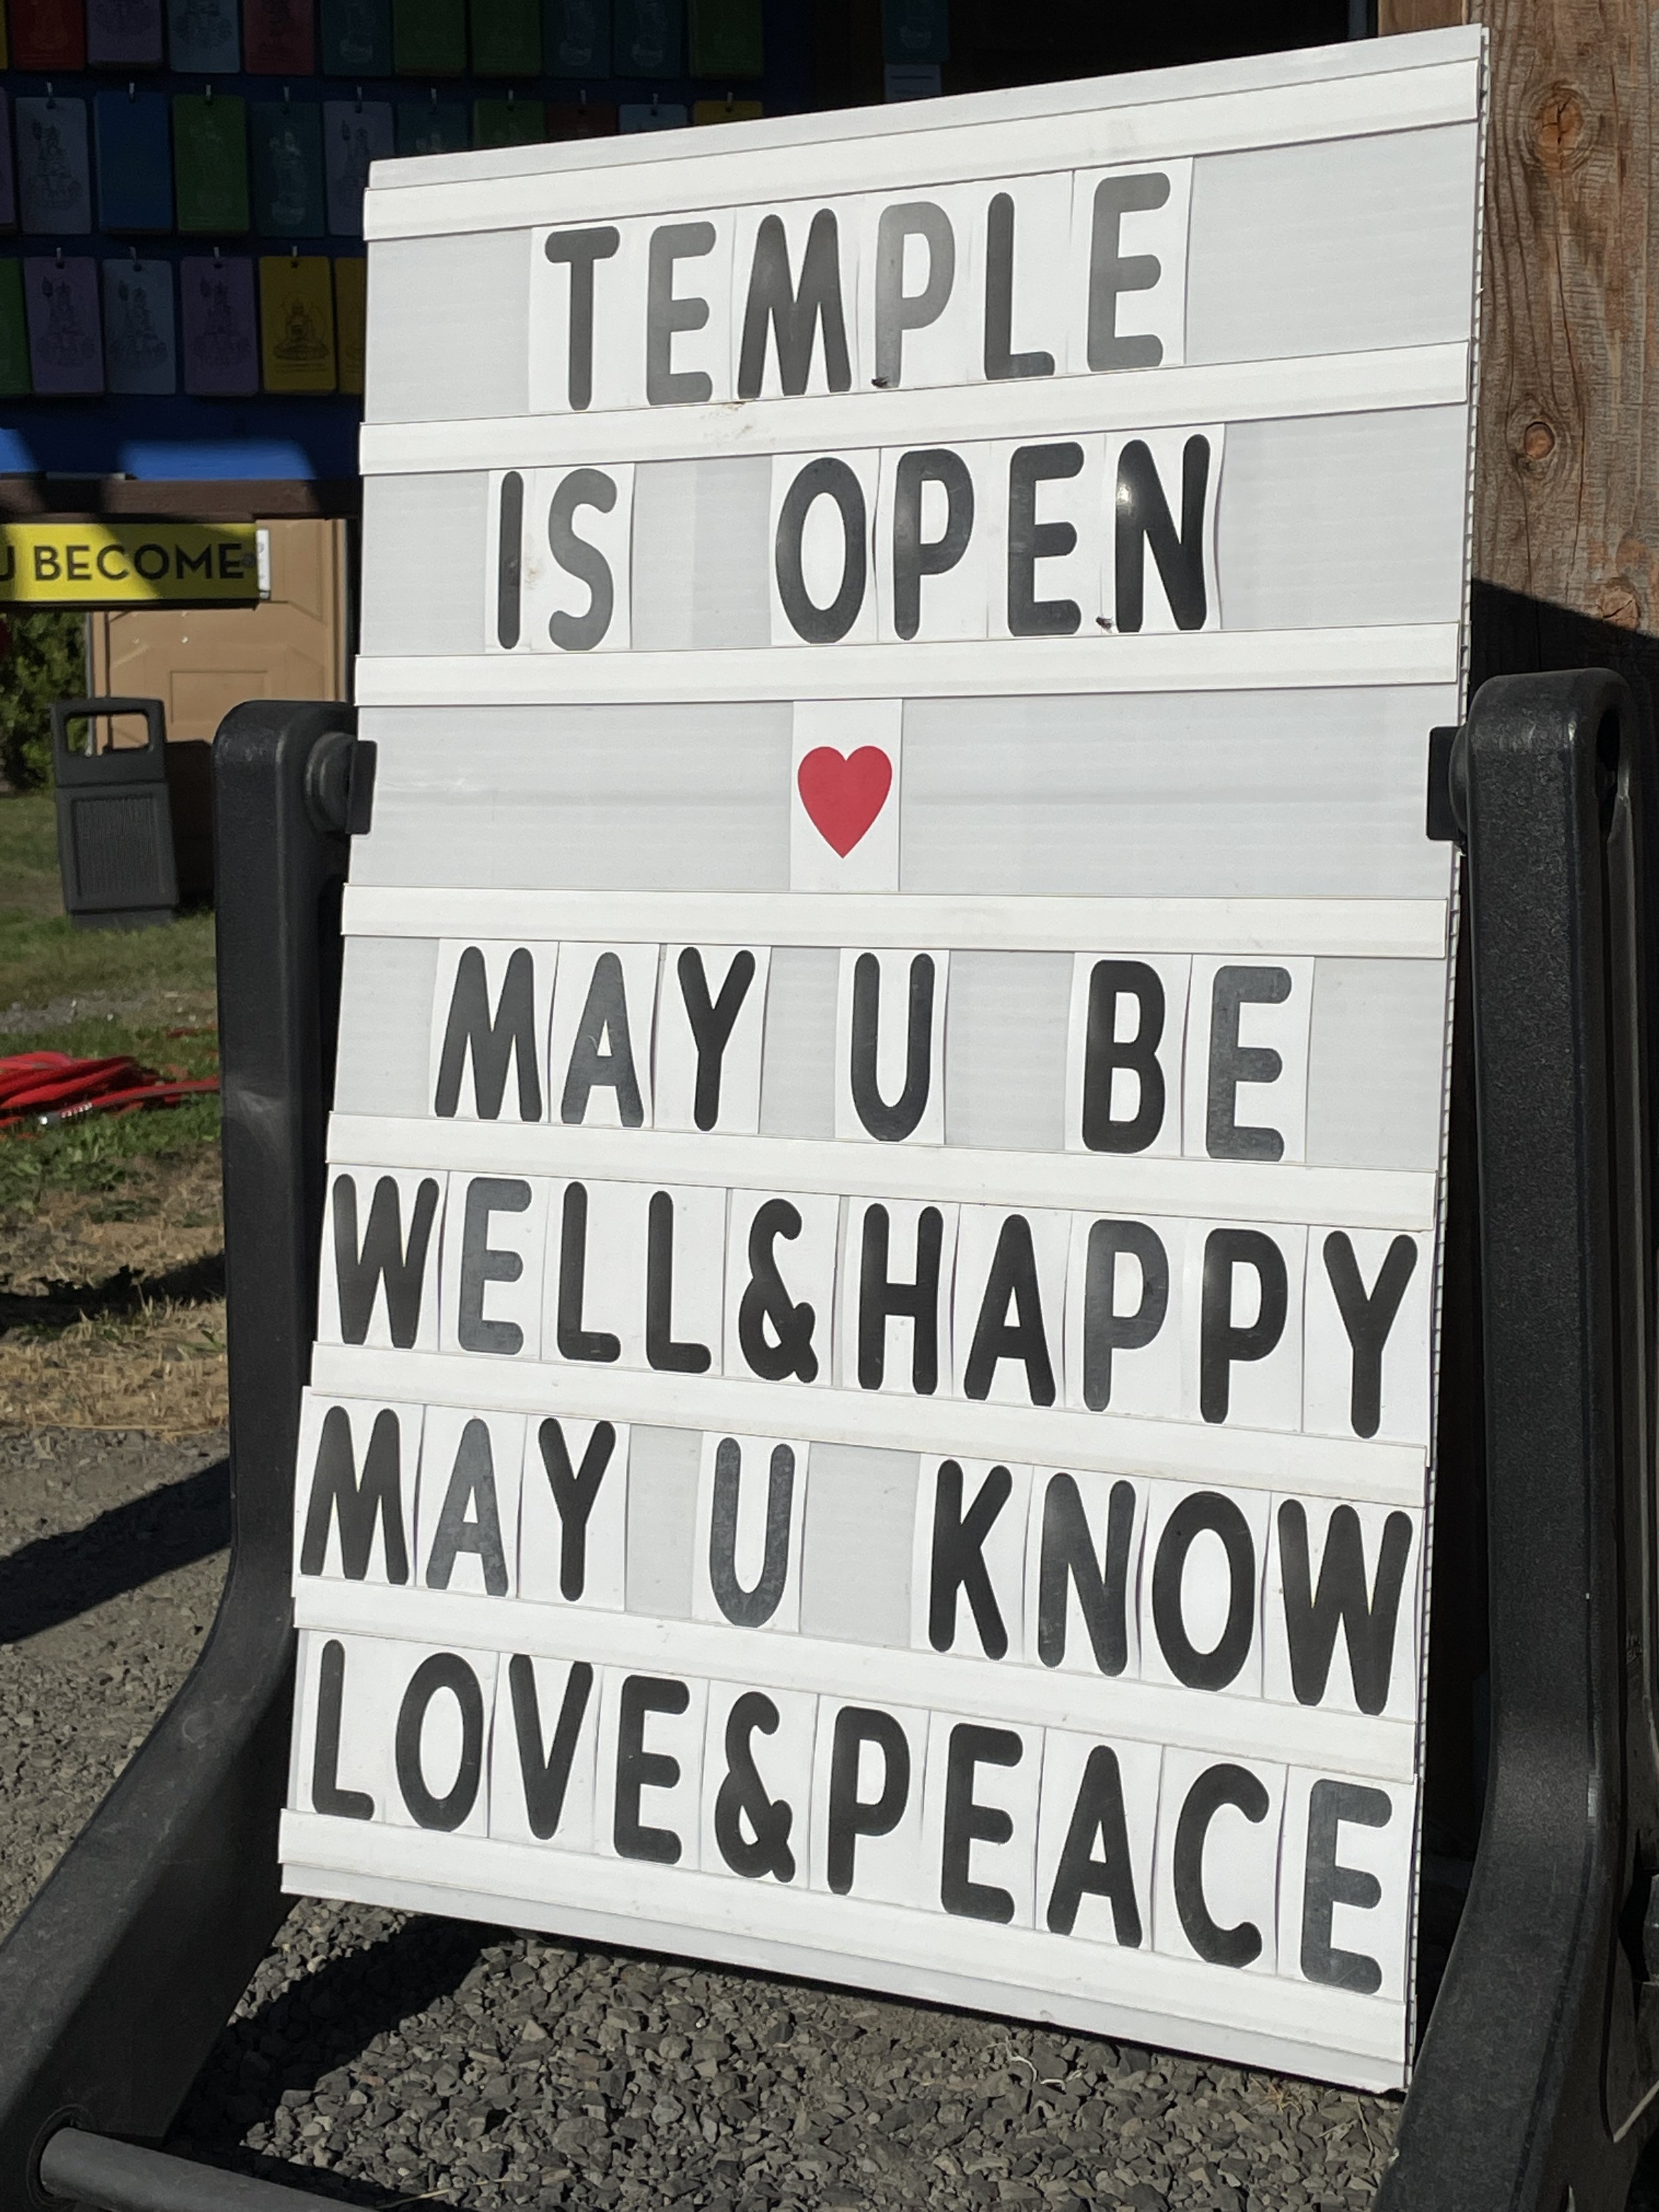 TEMPLE
IS OPEN
♥
MAY U BE
WELL&HAPPY
MAY U KNOW
LOVE&PEACE
BECOME